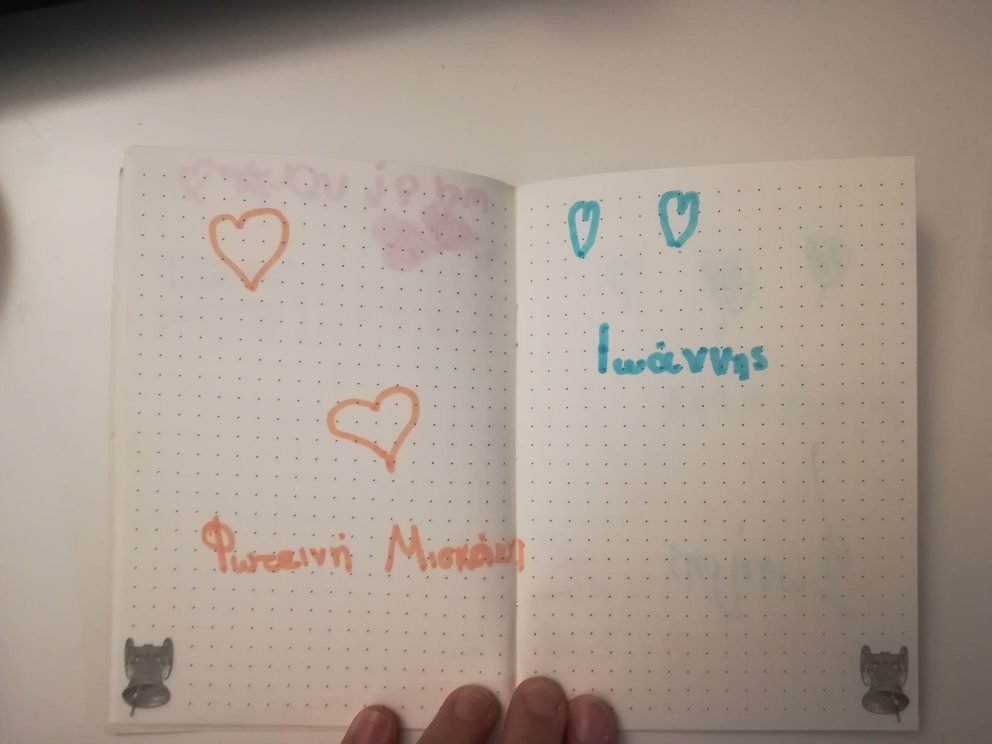 Φωτεινή Μισκάκη
Ιωάννης